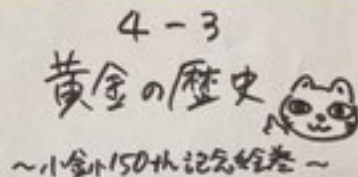 4-3
黄金の歴史
～小金小150th記念絵巻～